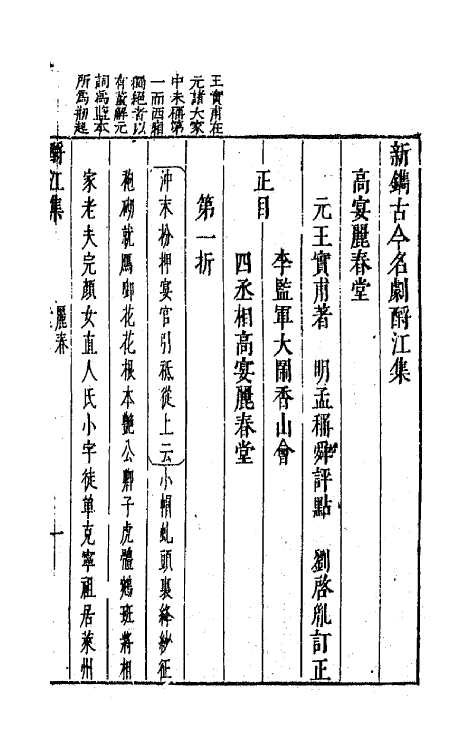 新鐫古今名劇酹江集
高宴麗春堂
元王實甫著　明孟稱舜評點　劉啓胤訂正
正目
李監軍大鬧香山會
四丞相高宴麗春堂
第一折
冲末扮押宴官引祗從上云小帽虬頭裹絳紗征
袍砌就鴈啣花花根本艷公卿子虎體鵷班將相
家老夫完顏女直人氏小字徒單克寧祖居萊州
王實甫在
元諸大家
中未稱第
一而西廂
獨絕者以
有董解元
詞爲監本
所爲
酹江集
麗春
一